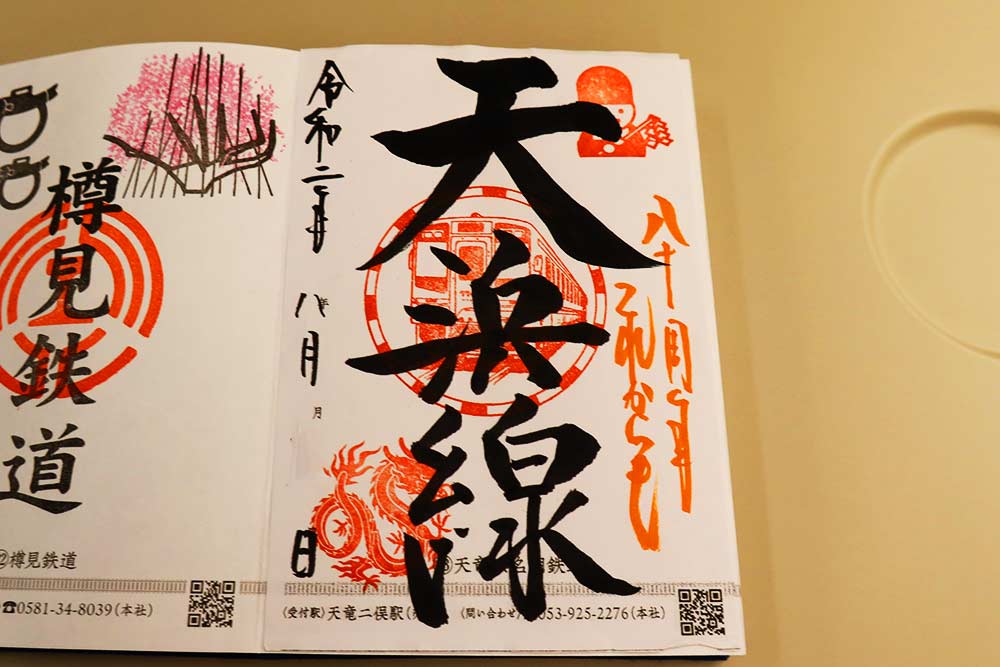 八十周年
これからも
天浜線
令和二年 八月 日
月
天竜 名湖鉄
〈受付駅〉天竜二俣駅 〈問い合わせ〉 053-925-2276(本社)
樽見鉄道
樽見鉄道
☎0581-34-8039(本社)